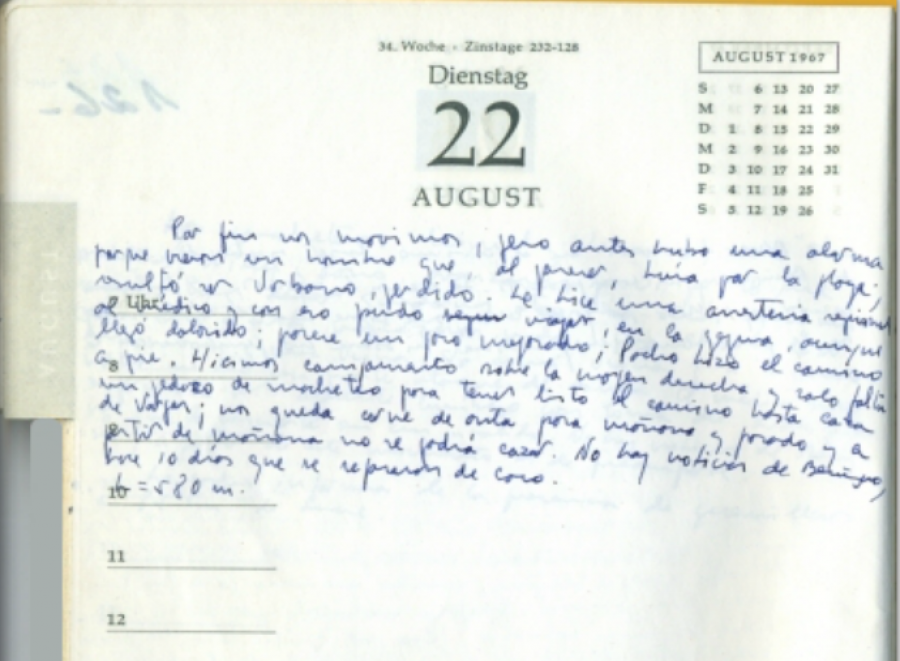 34. Woche - Zinstage 232-128
Dienstag
22
AUGUST
AUGUST 1967
S 6 13 20 27
M 7 14 21 28
D 1 8 15 22 29
M 2 9 16 23 30
D 3 10 17 24 31
F 4 11 18 25
S 5 12 19 26
Por fin nos movimos, pero antes hubo una alarma
porque vieron un hombre que, al parecer, huía por la playa;
resultó ser Urbano, perdido. Le hice una anestesia regional
al Médico y con eso pudo viajar, en la yegua, aunque
llegó dolorido; parece un poco mejorado; Pacho hizo el camino
a pie. Hicimos campamento sobre la margen derecha y solo falta
un pedazo de macheteo para tener listo el camino hasta casa
de Vargas; nos queda carne de anta para mañana y pasado y a
partir de mañana no se podrá cazar. No hay noticias de Benigno,
hace 10 días que se separaron de coco.
h=580 m.
7 Uhr
8
9
10
11
12